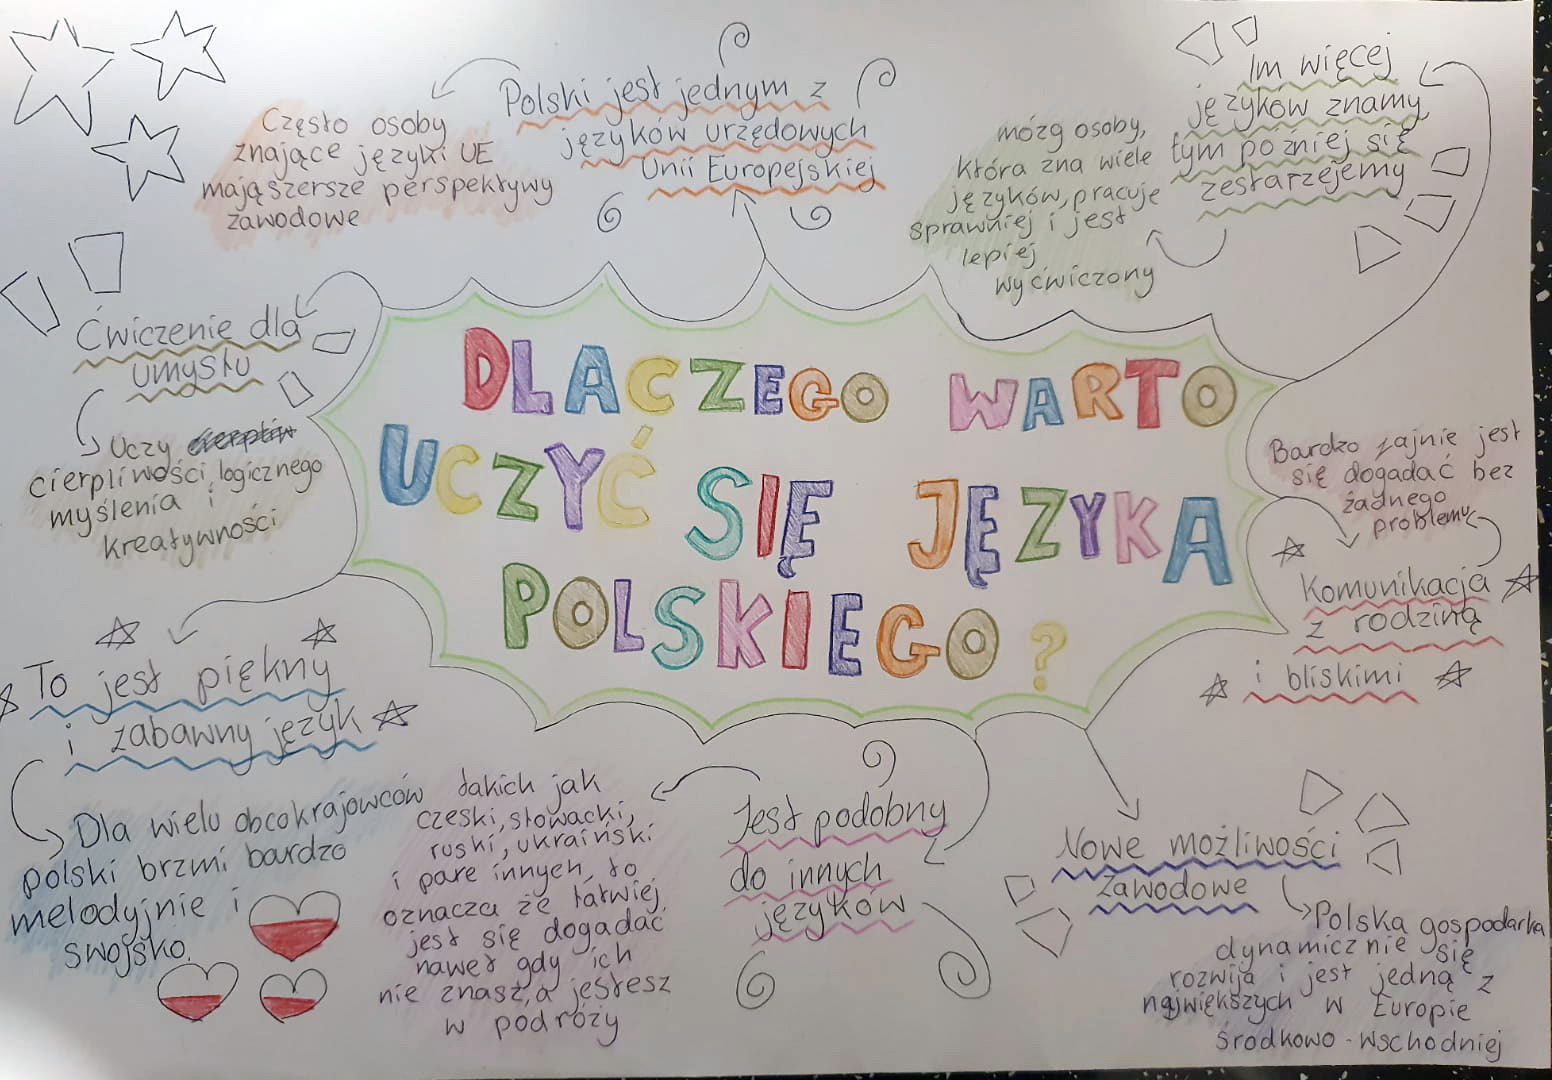 DLACZEGO WARTO
UCZYĆ SIĘ JĘZYKA
POLSKIEGO?
Polski jest jednym z
języków urzędowych
Unii Europejskiej
Często osoby
znające języki UE
mają szersze perspektywy
zawodowe
Im więcej
języków znamy
tym pozniej się
zestarzejemy
mózg osoby,
która zna wiele
języków, pracuje
sprawniej i jest
lepiej
wyćwiczony
Ćwiczenie dla
umysłu
Uczy
cierpliwości, logicznego
myślenia i
kreatywności
Bardzo fajnie jest
się dogadać bez
żadnego
problemu
Komunikacja
z rodziną
i bliskimi
To jest piękny
i zabawny język
Dla wielu obcokrajowców
polski brzmi bardzo
melodyjnie i
swojsko.
Jest podobny
do innych
języków
takich jak
czeski, słowacki,
ruski, ukraiński
i pare innych, to
oznacza że łatwiej
jest się dogadać
nawet gdy ich
nie znasz, a jesteś
w podróży
Nowe możliwości
zawodowe
Polska gospodarka
dynamicznie się
rozwija i jest jedną z
największych w Europie
środkowo-wschodniej